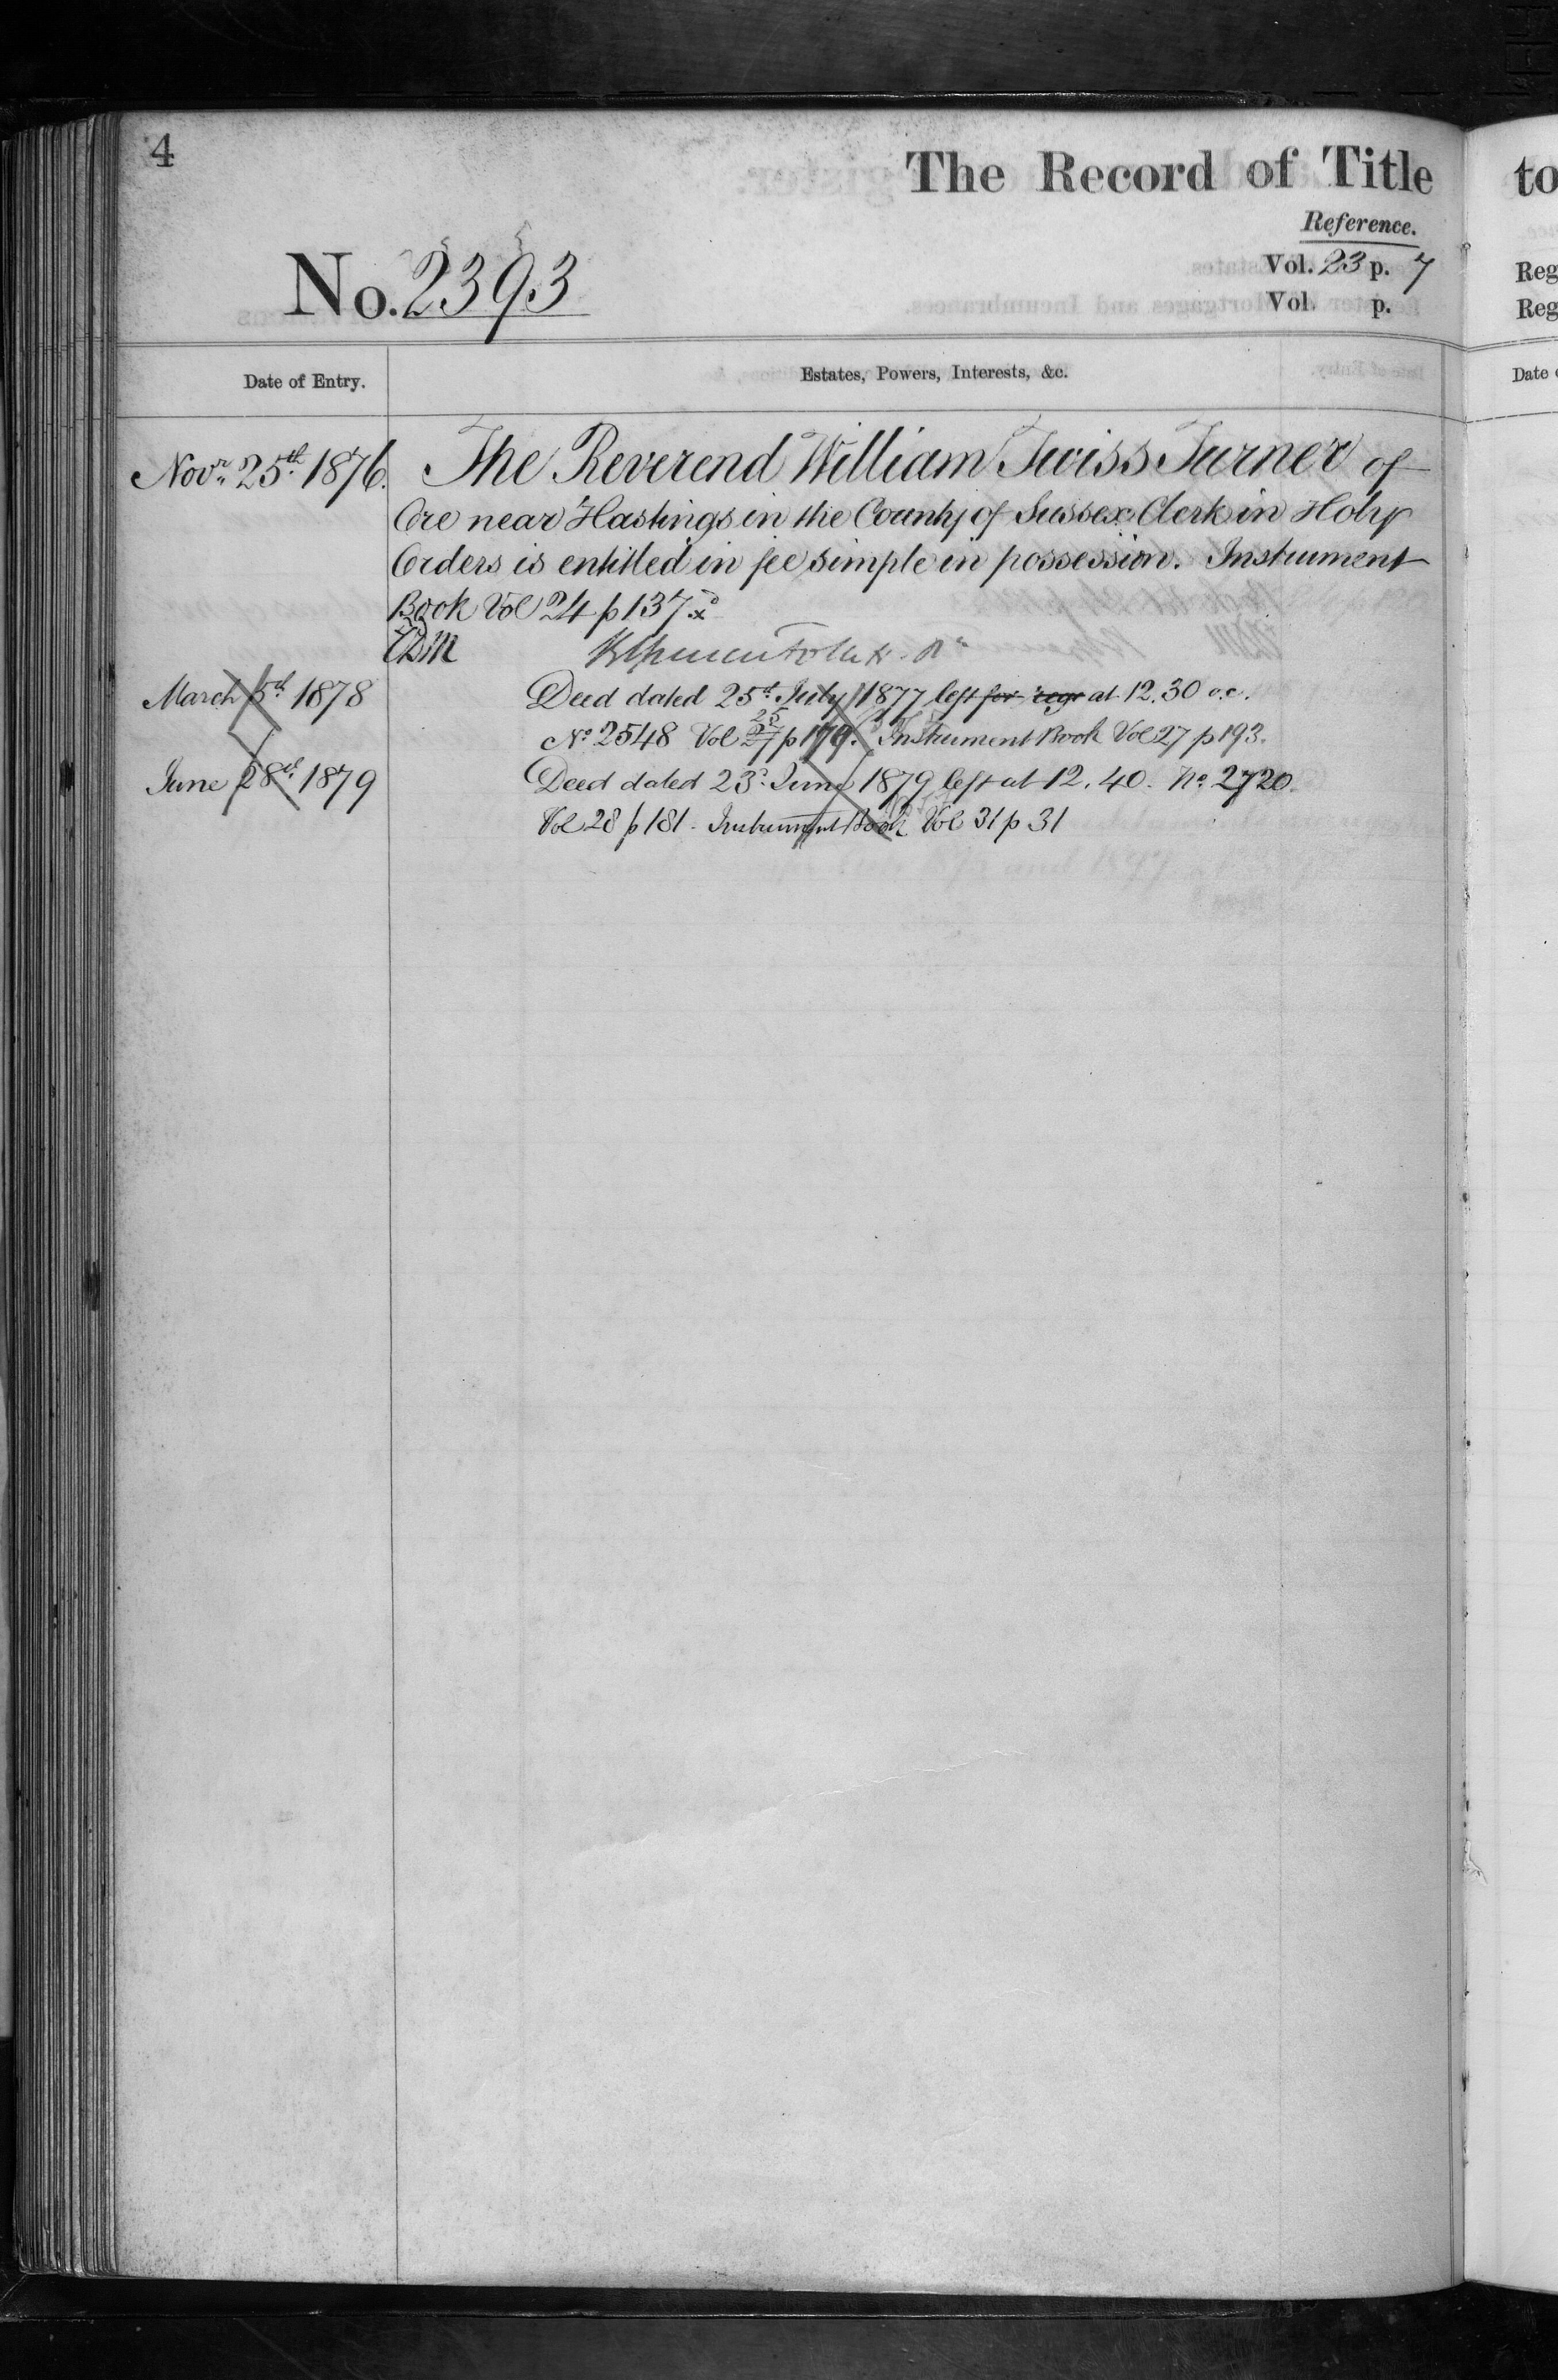 4
The Record of Title
to
Reference.
No. 2393
Vol. 23 p. 7
Vol. p.
Reg
Reg
Date of Entry.
Estates, Powers, Interests, &c.
Date
Novr. 25th. 1876.
The Reverend William Twiss Turner of
Ore near Hastings in the County of Sussex Clerk in Holy
Orders is entitled in fee simple in possession. Instrument
Book Vol 24 p 137.
March 5th 1878
Deed dated 25th July 1877 left for regr at 12.30 o.c.
25
No 2548 Vol 27 p 179. Instrument Book Vol 27 p 193.
June 28th 1879
Deed dated 23d. June 1879 left at 12.40. No. 2720.
Vol 28 p 181 - Instrument Book Vol 31 p 31